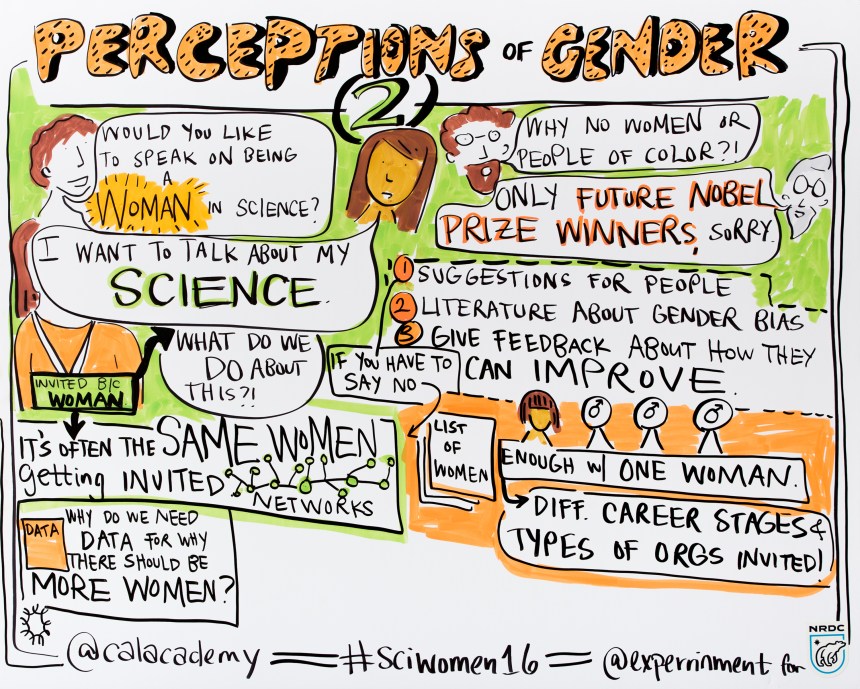 PERCEPTIONS OF GENDER
(2)
WOULD YOU LIKE
TO SPEAK ON BEING
A
WOMAN IN SCIENCE?
I WANT TO TALK ABOUT MY
SCIENCE.
WHY NO WOMEN OR
PEOPLE OF COLOR?!
ONLY FUTURE NOBEL
PRIZE WINNERS, SORRY.
INVITED B/C
WOMAN
WHAT DO WE
DO ABOUT
THIS?!
IF YOU HAVE TO
SAY NO
1 SUGGESTIONS FOR PEOPLE
2 LITERATURE ABOUT GENDER BIAS
3 GIVE FEEDBACK ABOUT HOW THEY
CAN IMPROVE.
IT'S OFTEN THE SAME WOMEN
getting INVITED
NETWORKS
LIST
OF
WOMEN
ENOUGH W/ ONE WOMAN.
DIFF. CAREER STAGES &
TYPES OF ORGS INVITED!
DATA
WHY DO WE NEED
DATA FOR WHY
THERE SHOULD BE
MORE WOMEN?
@calacademy = #Sciwomen16 = @experrinment for
NRDC